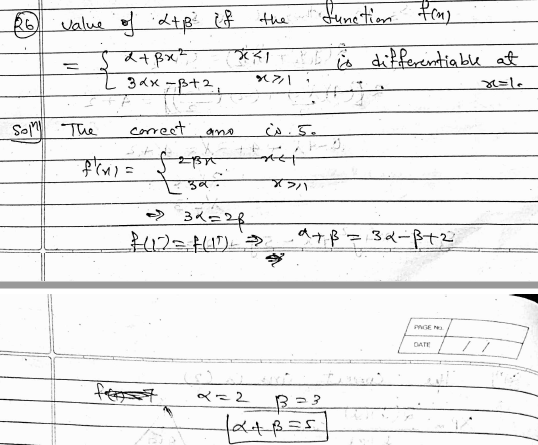 26 value of α+β if the function f(x)
= { α+βx² x<1
3αx-β+2, x≥1 ; is differentiable at x=1.
Solⁿ The correct ans is 5.
f'(x) = { 2βx x<1
3α x≥1
⇒ 3α=2β
f(1⁻)=f(1⁺) ⇒ α+β = 3α-β+2
⇒
PAGE No.
DATE / /
α=2 β=3
α+β=5